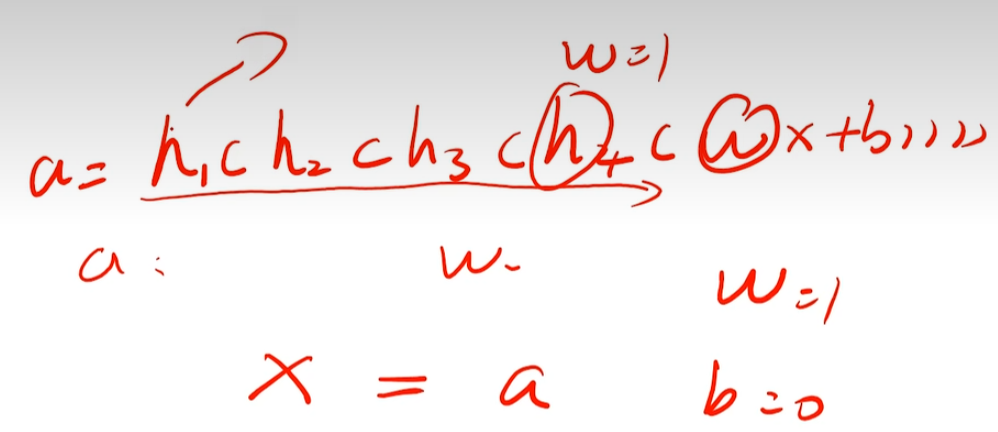 w=1
a= h₁c h₂ c h₃ c h₄ c w x+b))))
a: w-
w=1
x = a b=0